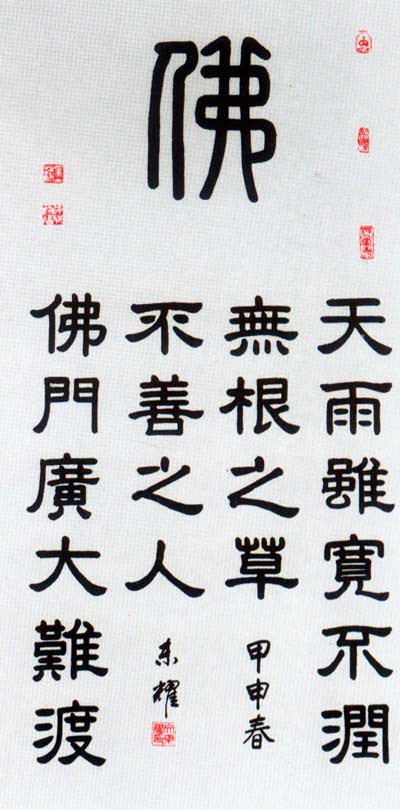 佛
天雨雖寬不潤
無根之草
甲申春
佛門廣大難渡
不善之人
東耀